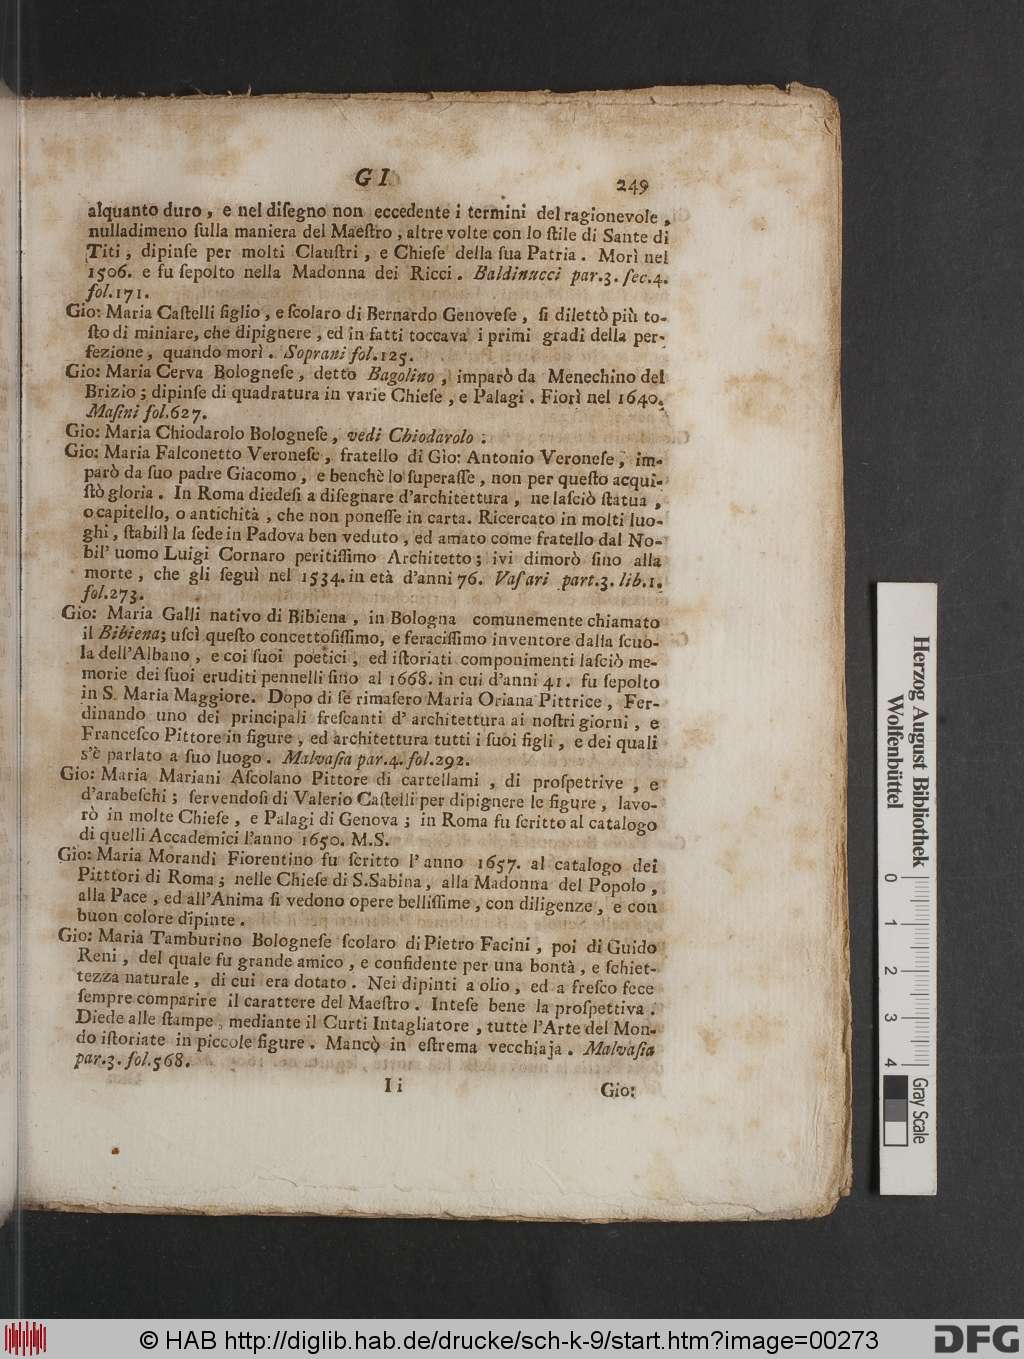 GI
249
alquanto duro, e nel diſegno non eccedente i termini del ragionevole,
nulladimeno ſulla maniera del Maeſtro, altre volte con lo ſtile di Sante di
Titi, dipinſe per molti Clauſtri, e Chieſe della ſua Patria. Morì nel
1506. e fu ſepolto nella Madonna dei Ricci. Baldinucci par.3. ſec.4.
fol.171.
Gio: Maria Caſtelli figlio, e ſcolaro di Bernardo Genoveſe, ſi dilettò più to-
ſto di miniare, che dipignere, ed in fatti toccava i primi gradi della per-
fezione, quando morì. Soprani fol.125.
Gio: Maria Cerva Bologneſe, detto Bagolino, imparò da Menechino del
Brizio; dipinſe di quadratura in varie Chieſe, e Palagi. Fiorì nel 1640.
Maſini fol.627.
Gio: Maria Chiodarolo Bologneſe, vedi Chiodarolo.
Gio: Maria Falconetto Veroneſe, fratello di Gio: Antonio Veroneſe, im-
parò da ſuo padre Giacomo, e benchè lo ſuperaſſe, non per queſto acqui-
ſtò gloria. In Roma diedeſi a diſegnare d'architettura, ne laſciò ſtatua,
o capitello, o antichità, che non poneſſe in carta. Ricercato in molti luo-
ghi, ſtabilì la ſede in Padova ben veduto, ed amato come fratello dal No-
bil' uomo Luigi Cornaro peritiſſimo Architetto; ivi dimorò ſino alla
morte, che gli ſeguì nel 1534. in età d'anni 76. Vaſari part.3. lib.1.
fol.273.
Gio: Maria Galli nativo di Bibiena, in Bologna comunemente chiamato
il Bibiena; uſcì queſto concettoſiſſimo, e feraciſſimo inventore dalla ſcuo-
la dell'Albano, e coi ſuoi poetici, ed iſtoriati componimenti laſciò me-
morie dei ſuoi eruditi pennelli ſino al 1668. in cui d'anni 41. fu ſepolto
in S. Maria Maggiore. Dopo di ſe rimaſero Maria Oriana Pittrice, Fer-
dinando uno dei principali freſcanti d' architettura ai noſtri giorni, e
Franceſco Pittore in figure, ed architettura tutti i ſuoi figli, e dei quali
s'è parlato a ſuo luogo. Malvaſia par.4. fol.292.
Gio: Maria Mariani Aſcolano Pittore di cartellami, di proſpetrive, e
d'arabeſchi; ſervendoſi di Valerio Caſtelli per dipignere le figure, lavo-
rò in molte Chieſe, e Palagi di Genova; in Roma fu ſcritto al catalogo
di quelli Accademici l'anno 1650. M.S.
Gio: Maria Morandi Fiorentino fu ſcritto l' anno 1657. al catalogo dei
Pitttori di Roma; nelle Chieſe di S.Sabina, alla Madonna del Popolo,
alla Pace, ed all'Anima ſi vedono opere belliſſime, con diligenze, e con
buon colore dipinte.
Gio: Maria Tamburino Bologneſe ſcolaro di Pietro Facini, poi di Guido
Reni, del quale fu grande amico, e confidente per una bontà, e ſchiet-
tezza naturale, di cui era dotato. Nei dipinti a olio, ed a freſco fece
ſempre comparire il carattere del Maeſtro. Inteſe bene la proſpettiva.
Diede alle ſtampe, mediante il Curti Intagliatore, tutte l'Arte del Mon-
do iſtoriate in piccole figure. Mancò in eſtrema vecchiaja. Malvaſia
par.3. fol.568.
Ii
Gio:
Herzog August Bibliothek
Wolfenbüttel
0 1 2 3 4
Gray Scale
© HAB http://diglib.hab.de/drucke/sch-k-9/start.htm?image=00273
DFG